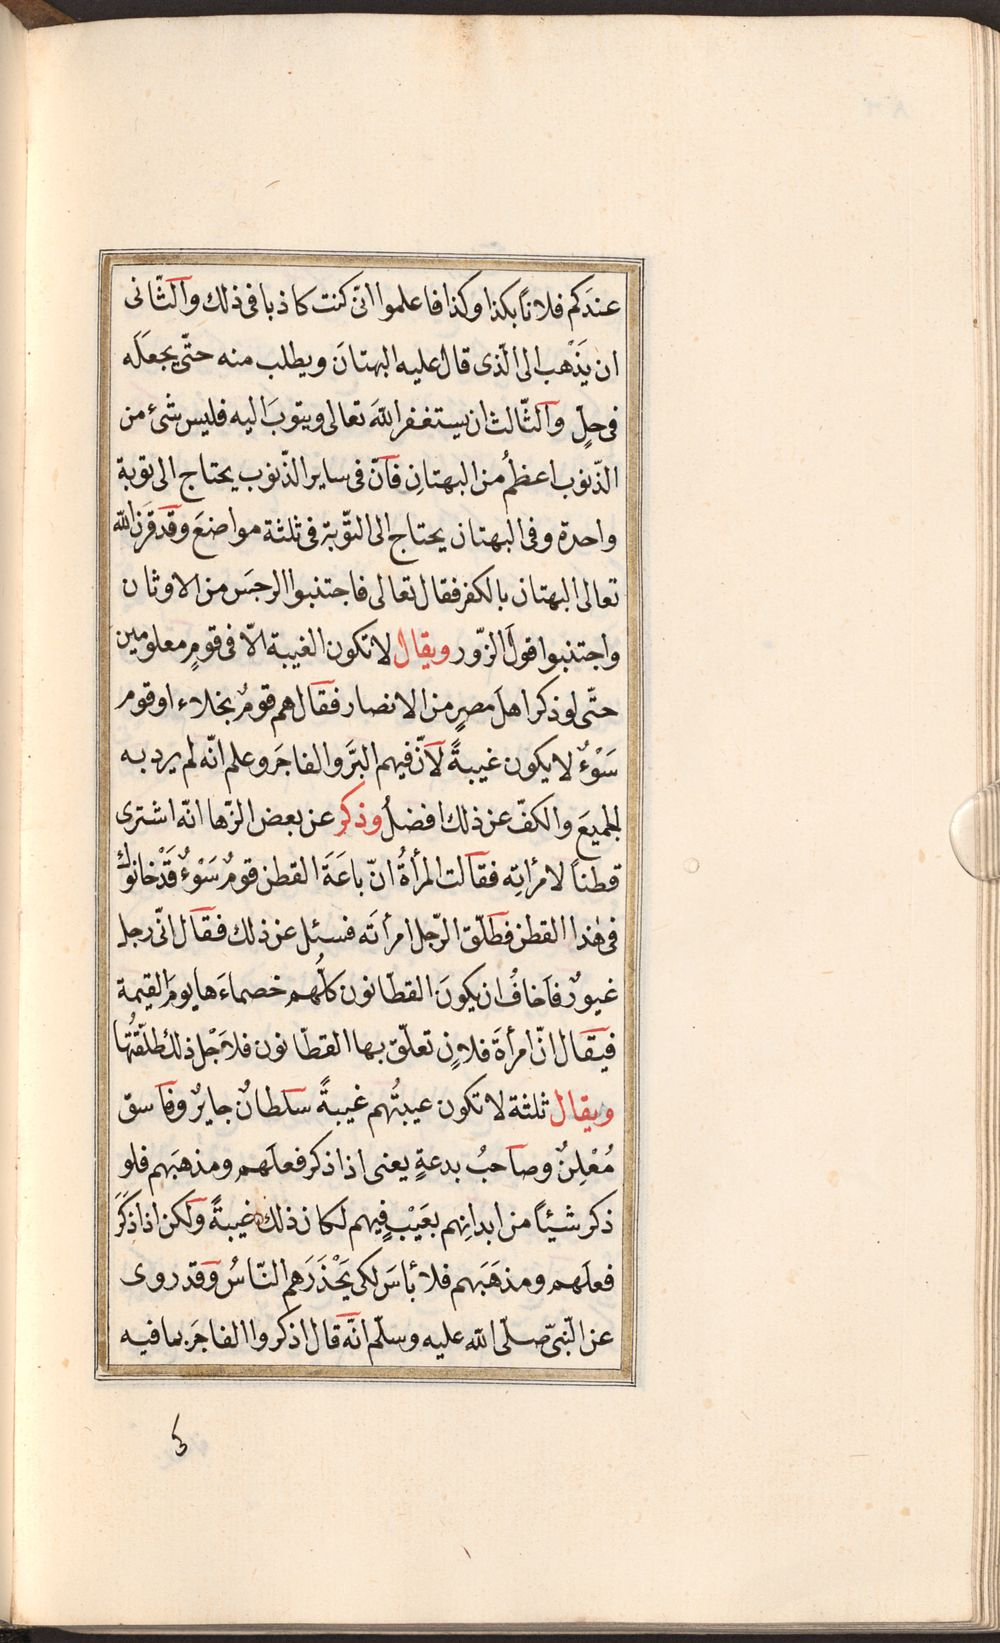 عندَكم فلانًا بكذا وكذا فاعلموا انّى كنت كاذبا فى ذلك والثّانى
ان يَذْهب الى الّذى قال عليه البهتانَ ويطلب منه حتّى يجعَلَه
فى حلٍّ والثّالث ان يستغفر اللهَ تعالى ويتوبَ اليه فليس شئ من
الذّنوب اعظمُ من البهتانِ فانّ فى ساير الذّنوب يحتاج الى توبة
واحدة وفى البهتان يحتاج الى التّوبة فى ثلثة مواضعَ وقد قرَن الله
تعالى البهتان بالكفر فقال تعالى فاجتنبوا الرجسَ من الاوثان
واجتنبوا قولَ الزّور ويقال لا تكون الغيبة الّا فى قومٍ معلومين
حتّى لو ذكر اهلَ مصرٍ من الانصار فقال هم قومٌ بخلاء او قوم
سَوْءٌ لا يكون غيبةً لانّ فيهم البَرَّ والفاجَر وعلم انّه لم يرد به
الجميعَ والكفّ عن ذلك افضلُ وذكر عن بعض الزّهاد انّه اشترى
قطنًا لامرأتِه فقالت المرأةُ انّ باعَةَ القطن قومٌ سَوْءٌ قَدْ خانوك
فى هٰذا القطن فطلّق الرّجل امرأتَه فسئل عن ذلك فقال انّى رجل
غيورٌ فاَخافُ ان يكونَ القطّانون كلُّهم خصماءَها يومَ القيمة
فيقال انّ امرأةَ فلانٍ تعلّق بها القطّانون فلاَجْل ذلك طلّقتُها
ويقال ثلثة لا تكون عيبتُهم غيبةً سلطانٌ جايرٌ وفاسق
مُعْلِنٌ وصاحبُ بدعةٍ يعنى اذا ذكر فعلَهم ومذهبَهم فلو
ذكر شيئًا من ابدانِهم بعَيْبٍ فيهم لكان ذلك غيبةً ولكن اذا ذكَرَ
فعلَهم ومذهَبَهم فلا بأسَ لكى يَحْذَرَهم النّاسُ وقد روى
عن النّبىّ صلّى الله عليه وسلّم انّه قال اذكروا الفاجَر بما فيه